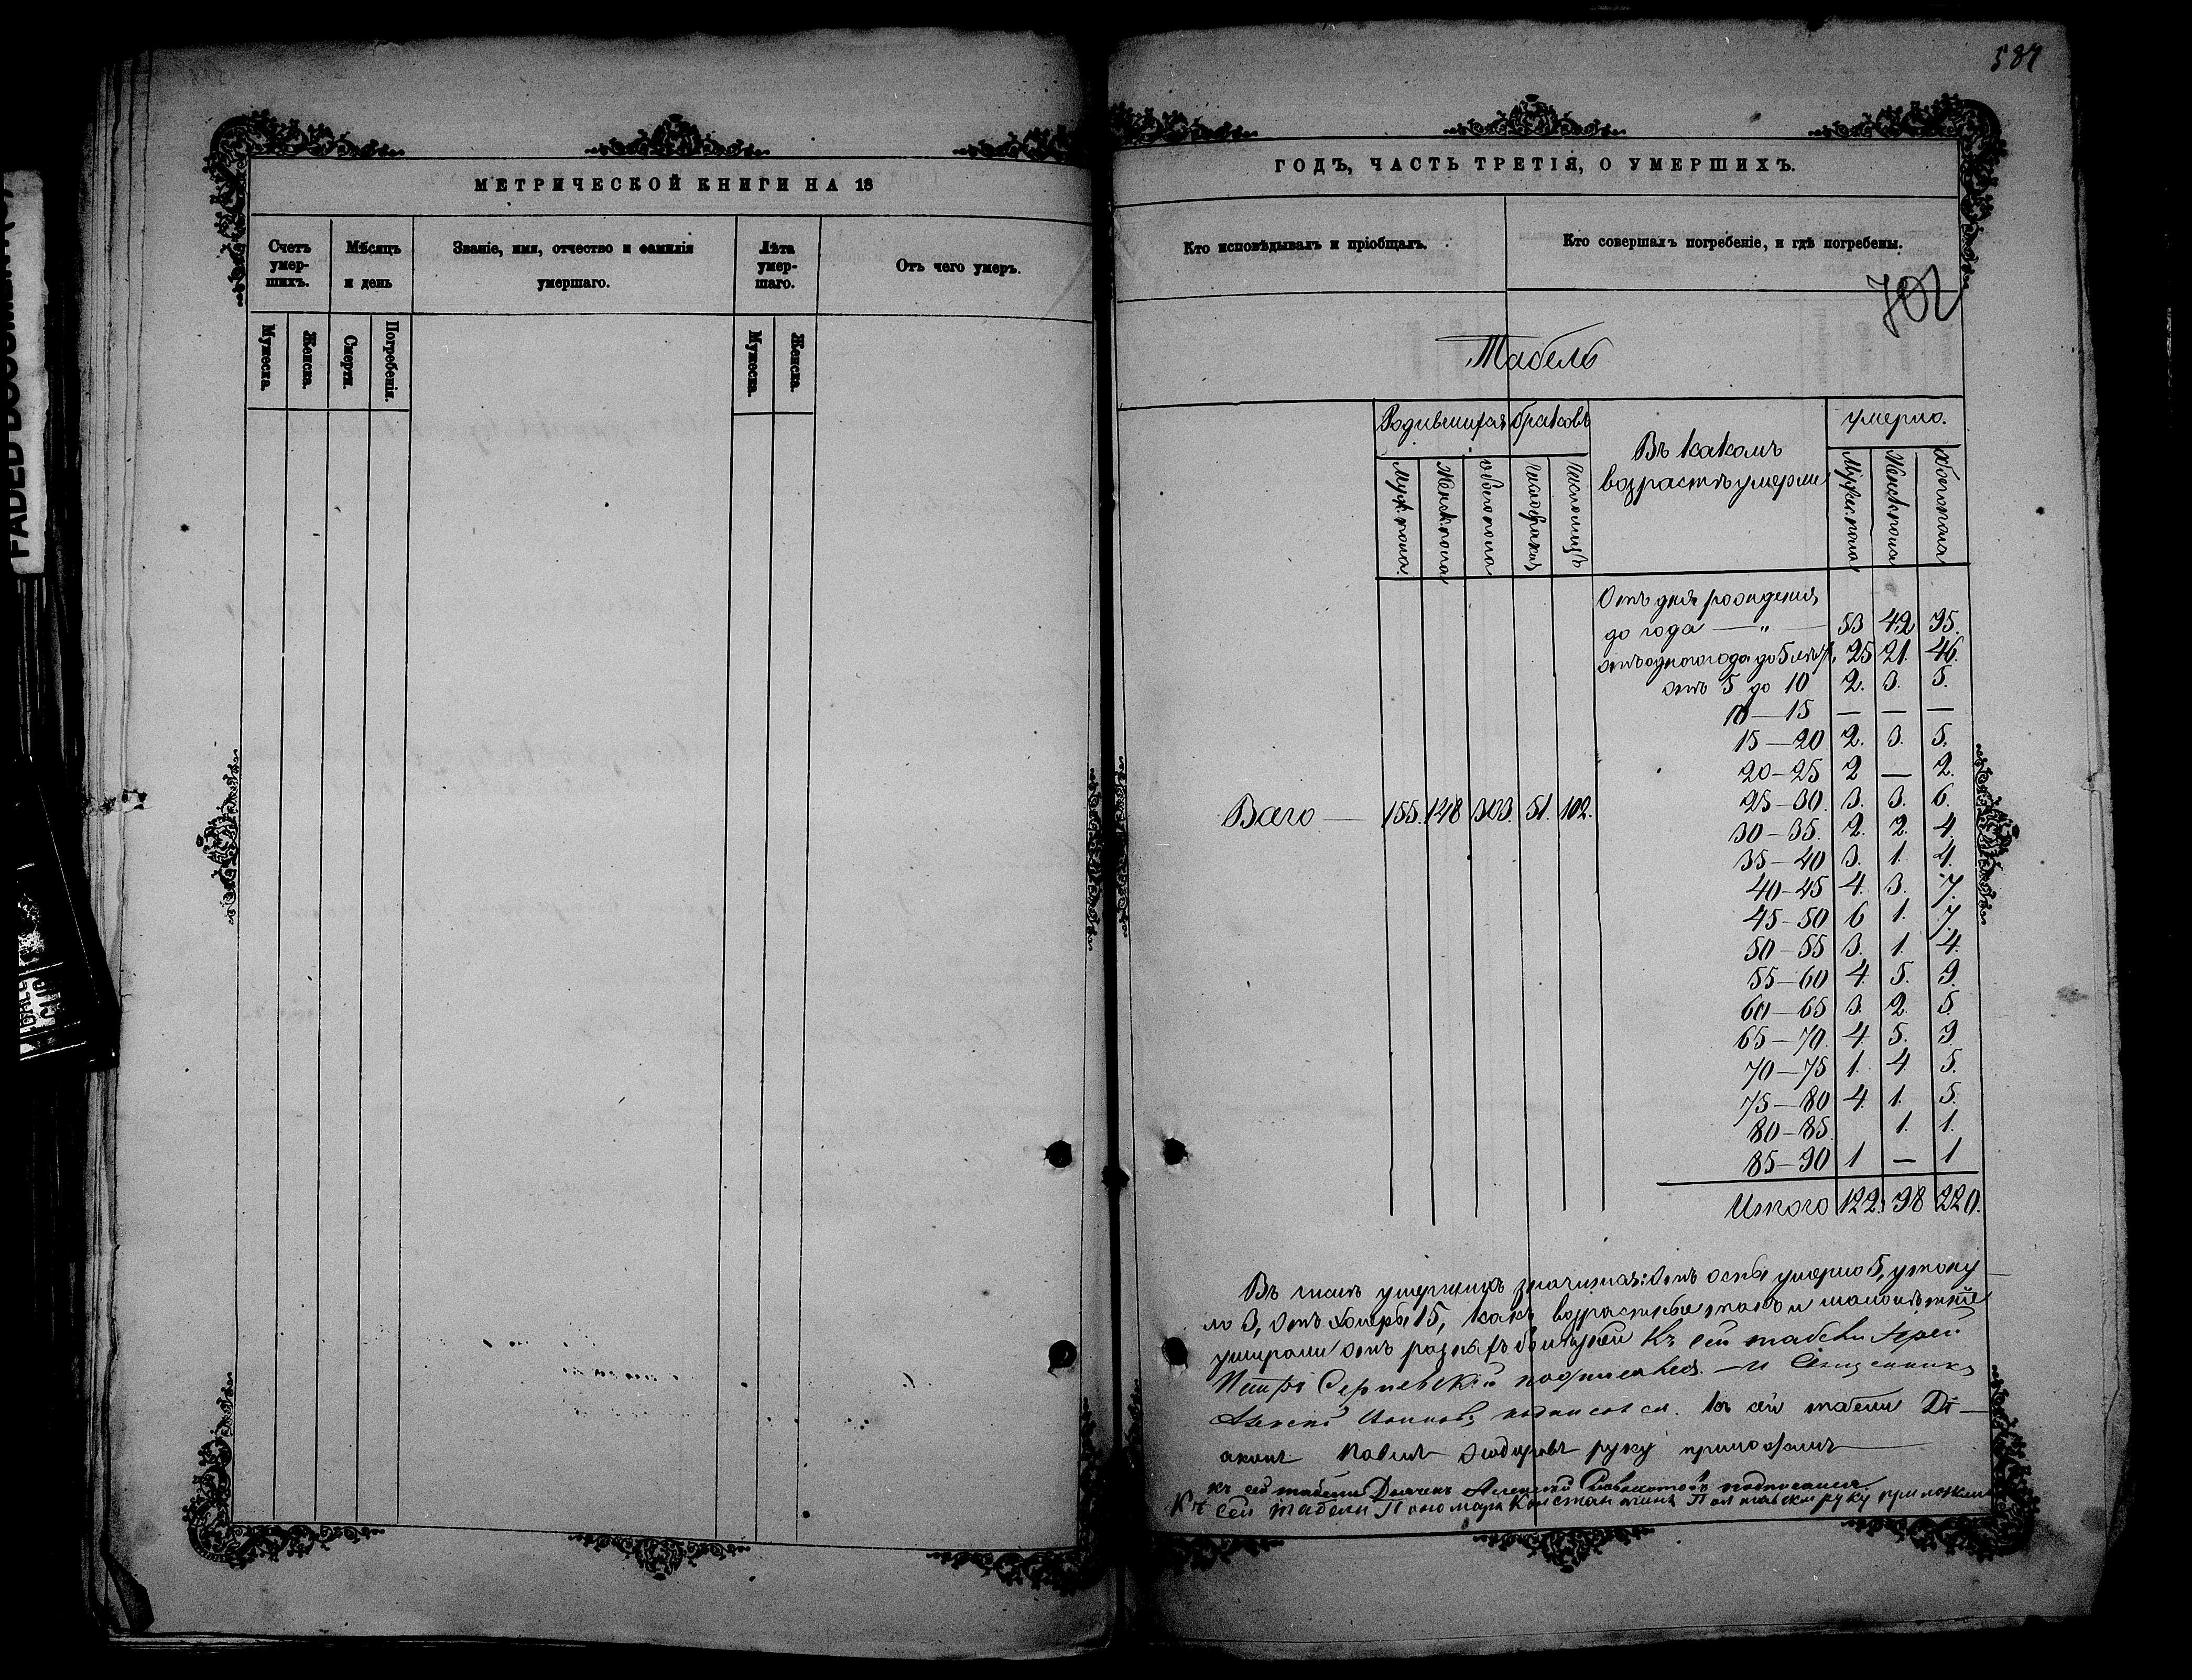 584
МЕТРИЧЕСКОЙ КНИГИ НА 18
Счетъ умер-шихъ.
Мѣсяцъ и день
Званіе, имя, отчество и фамилія умершаго.
Лѣта умер-шаго.
Отъ чего умеръ.
Мужеска.
Женска.
Смерти.
Погребенія.
Мужеска.
Женска.
ГОДЪ, ЧАСТЬ ТРЕТІЯ, О УМЕРШИХЪ.
Кто исповѣдывалъ и пріобщалъ.
Кто совершалъ погребеніе, и гдѣ погребены.
702
Табель
Родившихся
браковъ
Въ какомъ
возрастѣ умерли
умерло.
Муж. пола.
Женск. пола
обоего пола
Число браковъ
Число лицъ
Мужес. пола
Женск. пола
Обоего пола
Отъ дня рожденія
до года — " — 53 42 95.
отъ одного года до 5 лѣтъ 25 21. 46.
отъ 5 до 10 2. 3. 5.
10—15 — — —
15—20 2. 3. 5.
20—25 2 — 2.
Всего — 155. 148 303. 51. 102.
25—30. 3. 3. 6.
30—35. 2. 2. 4.
35—40 3. 1. 4.
40—45 4. 3. 7.
45—50 6 1. 7.
50—55 3. 1. 4.
55—60 4. 5. 9.
60—65 3. 2. 5.
65—70. 4. 5. 9.
70—75 1. 4. 5.
75—80 4. 1. 5.
80—85. 1. 1.
85—90 1 — 1
Итого 122. 98 220.
Въ числѣ умершихъ значится: Отъ оспы умерло 5, утону
ло 3, отъ холеры 15, какъ возрастные такъ и малолѣтніе
умирали отъ разныхъ болѣзней Къ сей табели Іерей
Петръ подписался. — и Священникъ
Алексѣй подписался. Къ сей табели Ді—
аконъ Павелъ руку приложилъ
къ сей табели Дьячекъ Алексѣй подписался.
Къ сей табели Пономарь Константинъ руку приложилъ